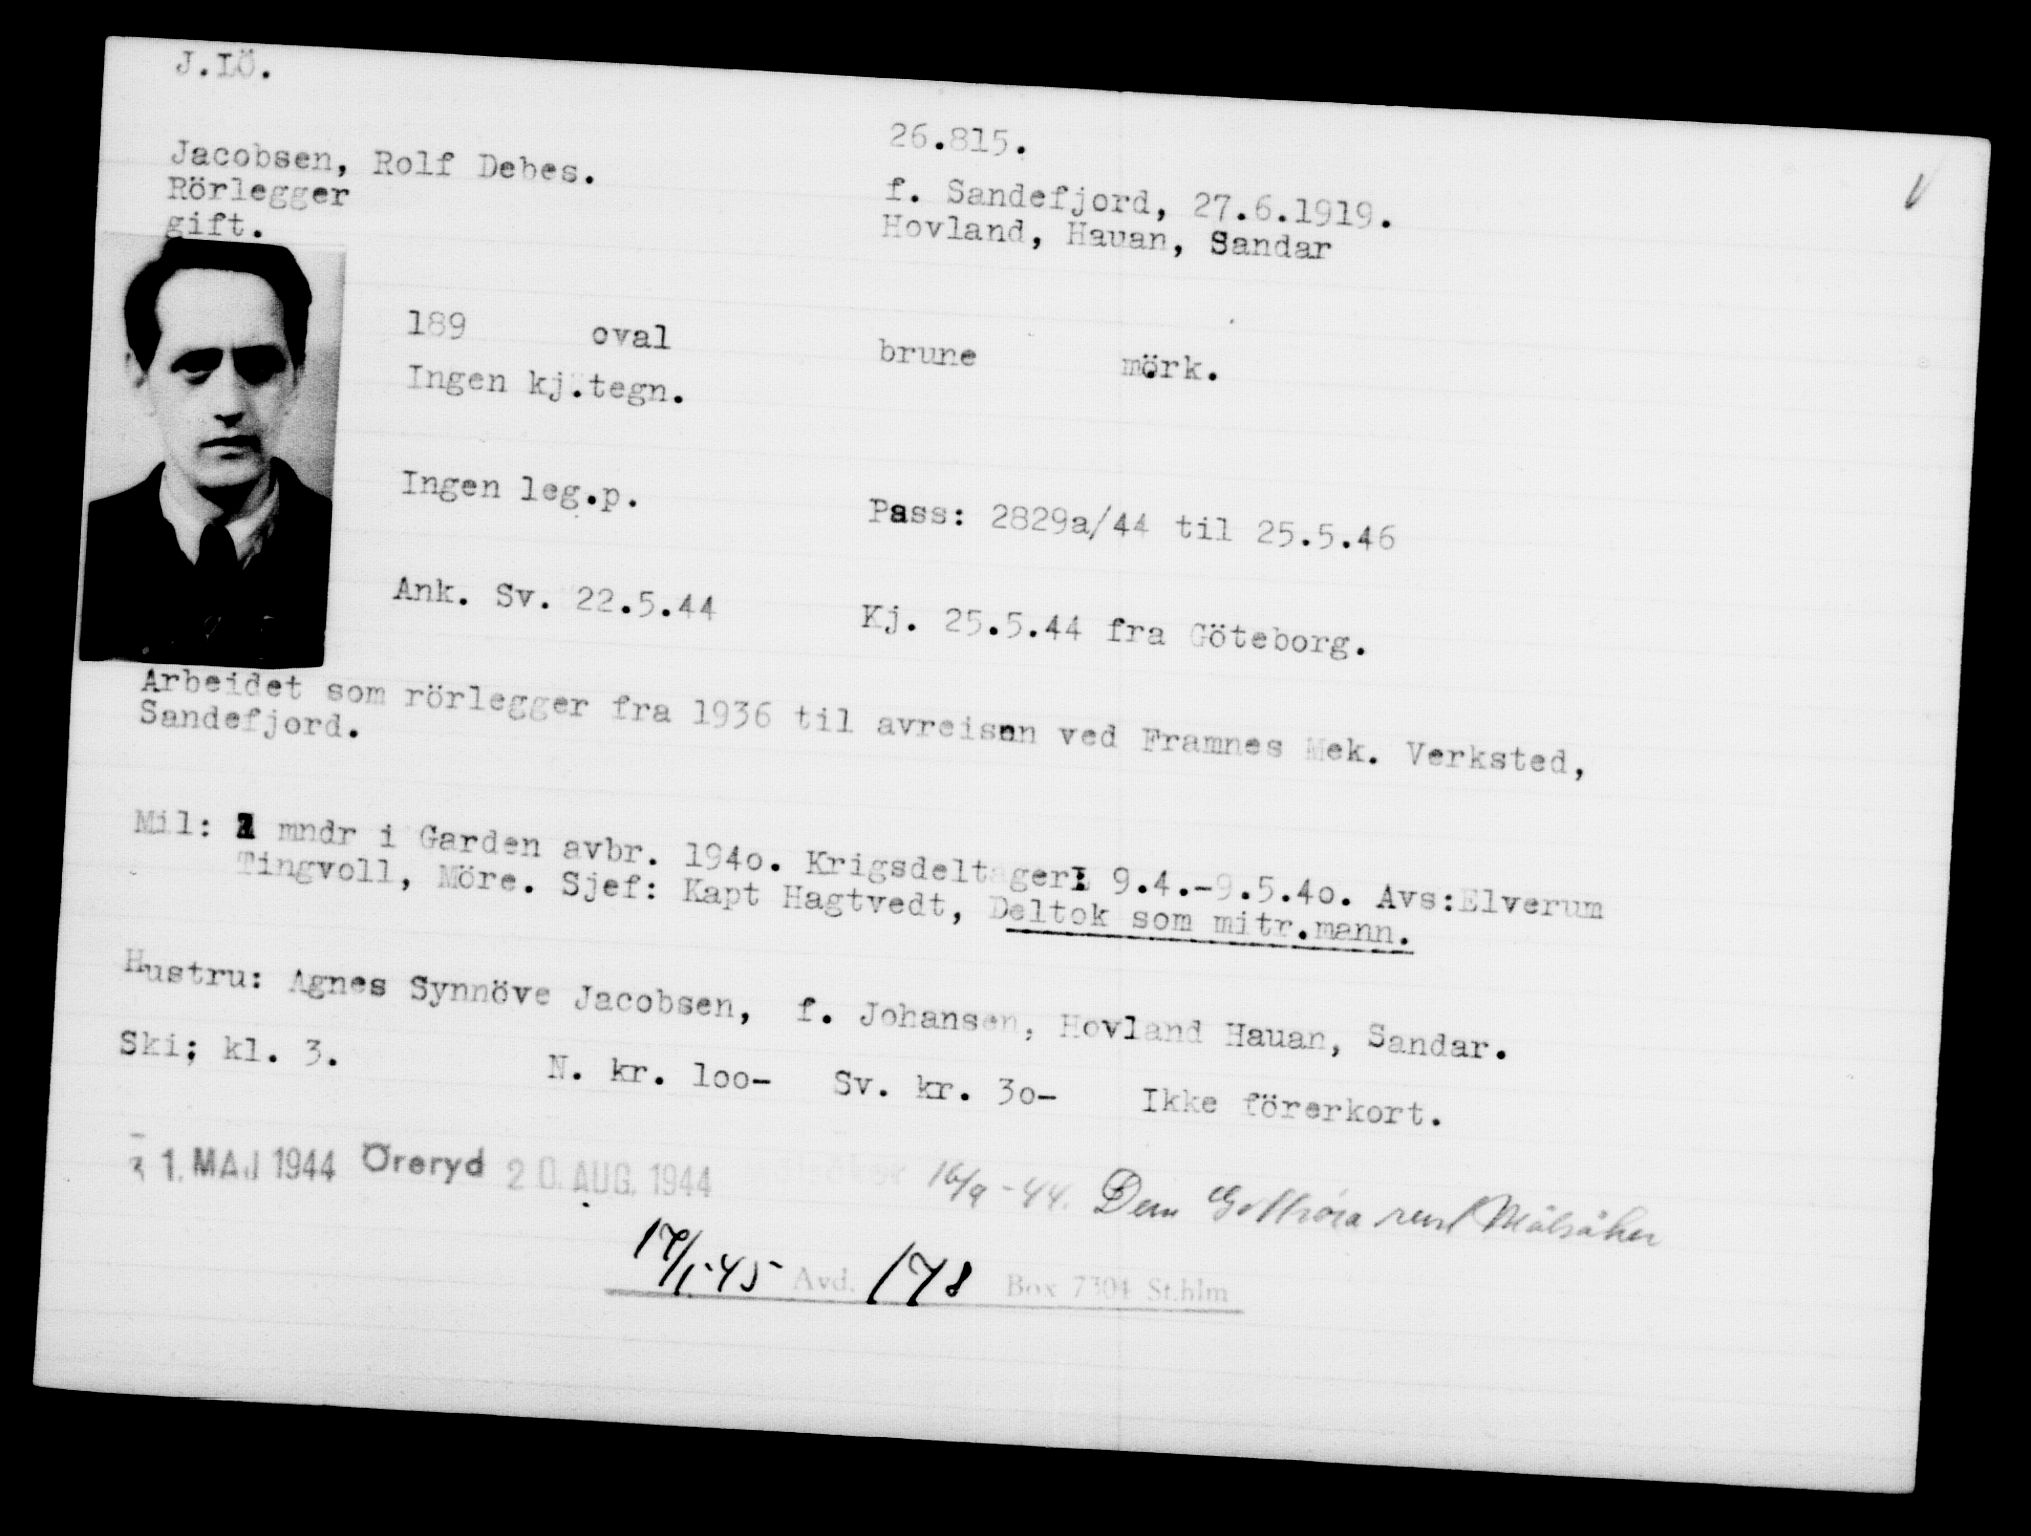 J.LÖ.
26.815.
Jacobsen, Rolf Debes.
f. Sandefjord, 27.6.1919.
Rörlegger
Hovland, Hauan, Sandar
gift.
189 oval brune mörk.
Ingen kj.tegn.
Ingen leg.p. Pass: 2829a/44 til 25.5.46
Ank. Sv. 22.5.44 Kj. 25.5.44 fra Göteborg.
Arbeidet som rörlegger fra 1936 til avreisen ved Framnes Mek. Verksted,
Sandefjord.
Mil: mndr i Garden avbr. 194o. Krigsdeltager: 9.4.-9.5.4o. Avs:Elverum
Tingvoll, Möre. Sjef: Kapt Hagtvedt, Deltok som mitr.mann.
Hustru: Agnes Synnöve Jacobsen, f. Johansen, Hovland Hauan, Sandar.
Ski; kl. 3. N. kr. loo- Sv. kr. 3o- Ikke förerkort.
31. MAJ 1944 Öreryd 20. AUG. 1944 16/9-44. Dem Gottröra Mälsåker
17/1-45 Avd. 178 Box 7304 St.hlm